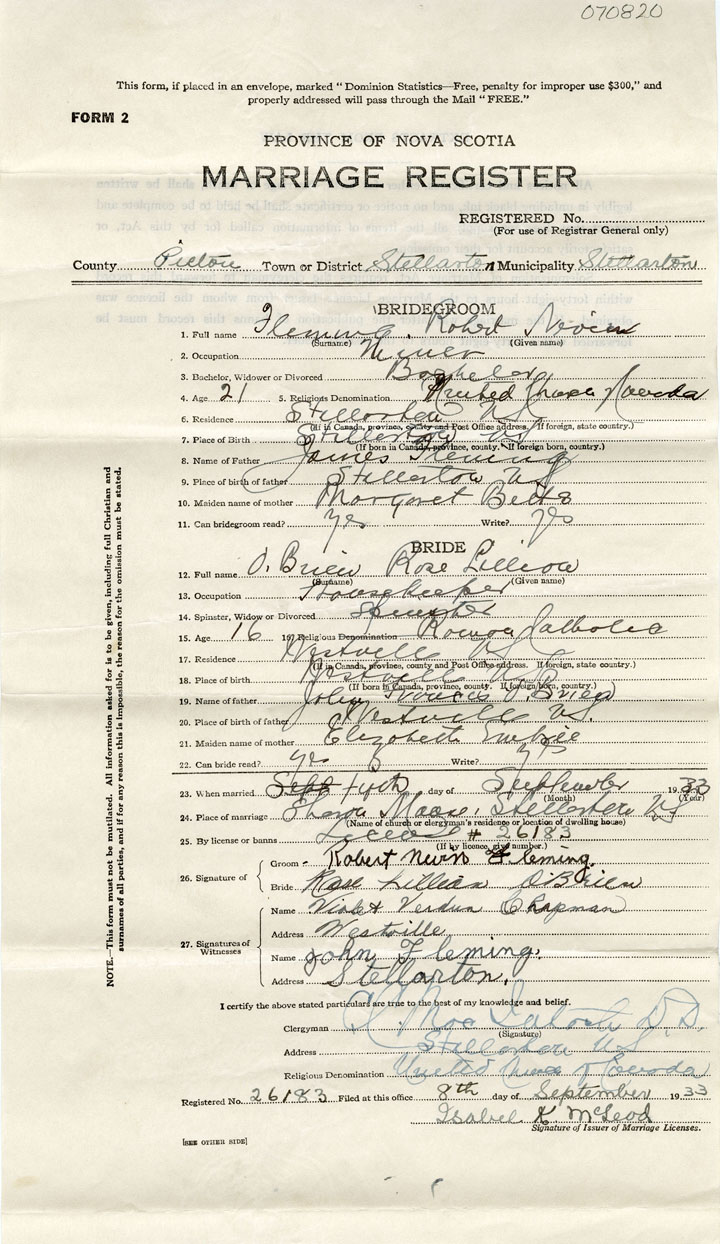 070820
This form, if placed in an envelope, marked "Dominion Statistics—Free, penalty for improper use $300," and
properly addressed will pass through the Mail "FREE."
FORM 2
PROVINCE OF NOVA SCOTIA
MARRIAGE REGISTER
REGISTERED No.
(For use of Registrar General only)
County Pictou Town or District Stellarton Municipality Stellarton
BRIDEGROOM
1. Full name Fleming, Robert Nevin
(Surname) (Given name)
2. Occupation Miner
3. Bachelor, Widower or Divorced Bachelor
4. Age 21 5. Religious Denomination United Church Canada
6. Residence Stellarton NS
(If in Canada, province, county and Post Office address. If foreign, state country.)
7. Place of Birth Stellarton NS
(If born in Canada, province, county. If foreign born, country.)
8. Name of Father James Fleming
9. Place of birth of father Stellarton NS
10. Maiden name of mother Margaret Betts
11. Can bridegroom read? yes Write? yes
BRIDE
12. Full name O'Brien Rose Lillian
(Surname) (Given name)
13. Occupation Housekeeper
14. Spinster, Widow or Divorced Spinster
15. Age 16 16. Religious Denomination Roman Catholic
17. Residence Westville NS
(If in Canada, province, county and Post Office address. If foreign, state country.)
18. Place of birth Westville NS
(If born in Canada, province, county. If foreign born, country.)
19. Name of father John O'Brien
20. Place of birth of father Westville NS.
21. Maiden name of mother Elizabeth
22. Can bride read? yes Write? yes
23. When married Sept day of September 1933
(Month) (Year)
24. Place of marriage Manse, Stellarton NS
(Name of church or clergyman's residence or location of dwelling house)
25. By license or banns License # 26183
(If by licence, give number.)
26. Signature of
Groom Robert Nevin Fleming.
Bride Rose Lillian O'Brien
27. Signatures of Witnesses
Name Violet Verdun Chapman
Address Westville
Name John Fleming.
Address Stellarton.
I certify the above stated particulars are true to the best of my knowledge and belief.
Clergyman D.D.
(Signature)
Address Stellarton NS
Religious Denomination United Church of Canada
Registered No. 26183 Filed at this office 8th day of September 1933
Isabel K McLeod
Signature of Issuer of Marriage Licenses.
[SEE OTHER SIDE]
NOTE.—This form must not be mutilated. All information asked for is to be given, including full Christian and
surnames of all parties, and if for any reason this is impossible, the reason for the omission must be stated.